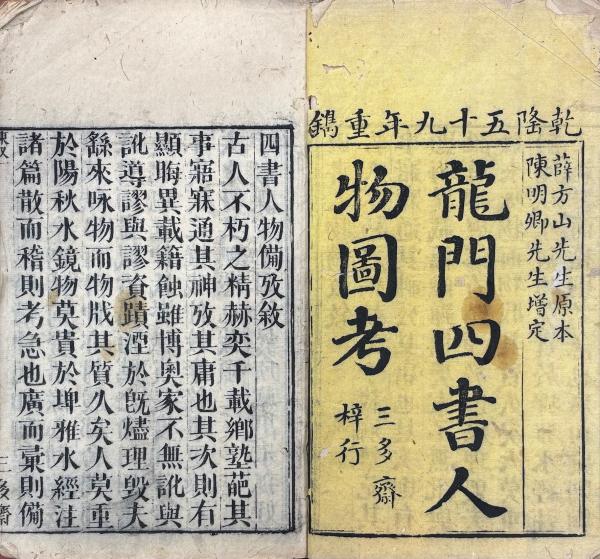 乾隆五十九年重鐫
薛方山先生原本
陳明卿先生增定
龍門四書人
物圖考
三多齋
梓行
四書人物備攷敘
古人不朽之精赫奕千載鄉塾葩其
事寤寐通其神攷其庸也其次則有
顯晦異載籍蝕雖博奥家不無訛與
訛導謬與謬資蹟湮於旣燼理毀夫
繇來咏物而物戕其質久矣人莫重
於陽秋水鏡物莫貴於埤雅水經注
諸篇散而稽則考急也廣而彙則備
三多齋